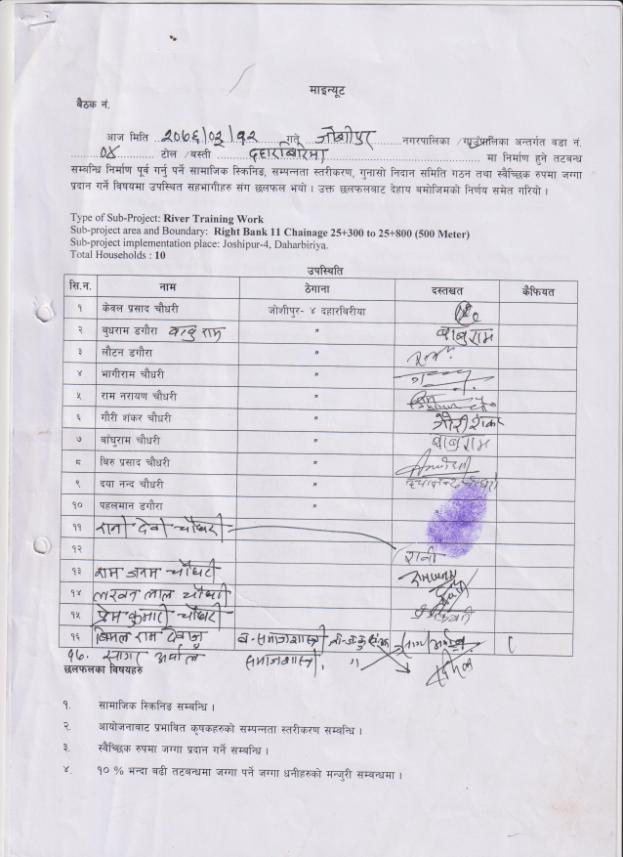 माइन्यूट
बैठक नं.
आज मिति ..२०७६/०३/१२.. गते ..जोशीपुर...... नगरपालिका /गाउँपालिका अन्तर्गत वडा नं.
....०४.... टोल /बस्ती .....दहारबिरिया..... मा निर्माण हुने तटबन्ध
सम्बन्धि निर्माण पूर्व गर्नु पर्ने सामाजिक स्किनिङ, सम्पन्नता स्तरीकरण, गुनासो निदान समिति गठन तथा स्वैच्छिक रुपमा जग्गा
प्रदान गर्ने विषयमा उपस्थित सहभागीहरु संग छलफल भयो । उक्त छलफलबाट देहाय बमोजिमको निर्णय समेत गरियो ।
Type of Sub-Project: River Training Work
Sub-project area and Boundary: Right Bank 11 Chainage 25+300 to 25+800 (500 Meter)
Sub-project implementation place: Joshipur-4, Daharbiriya.
Total Households : 10
उपस्थिति
सि.न. नाम ठेगाना दस्तखत कैफियत
१ केवल प्रसाद चौधरी जोशीपुर- ४ दहारबिरीया
२ बुधराम डगौरा बाबु राम " बाबुराम
३ लौटन डगौरा "
४ भागीराम चौधरी "
५ राम नरायण चौधरी "
६ गौरी शंकर चौधरी " गौरी शंकर
७ बांधुराम चौधरी " बाबुराम
८ बिरु प्रसाद चौधरी "
९ दया नन्द चौधरी "
१० पहलमान डगौरा "
११ रानी देवी चौधरी
१२ रानी
१३ राम जनम चौधरी
१४ लखन लाल चौधरी
१५ प्रेम कुमारी चौधरी
१६ बिमल राम
१७. सागर समाजशास्त्री "
छलफलका विषयहरु
१. सामाजिक स्किनिङ सम्बन्धि ।
२. आयोजनाबाट प्रभावित कृषकहरुको सम्पन्नता स्तरीकरण सम्बन्धि ।
३. स्वैच्छिक रुपमा जग्गा प्रदान गर्ने सम्बन्धि ।
४. १० % भन्दा बढी तटबन्धमा जग्गा पर्ने जग्गा धनीहरुको मन्जुरी सम्बन्धमा ।